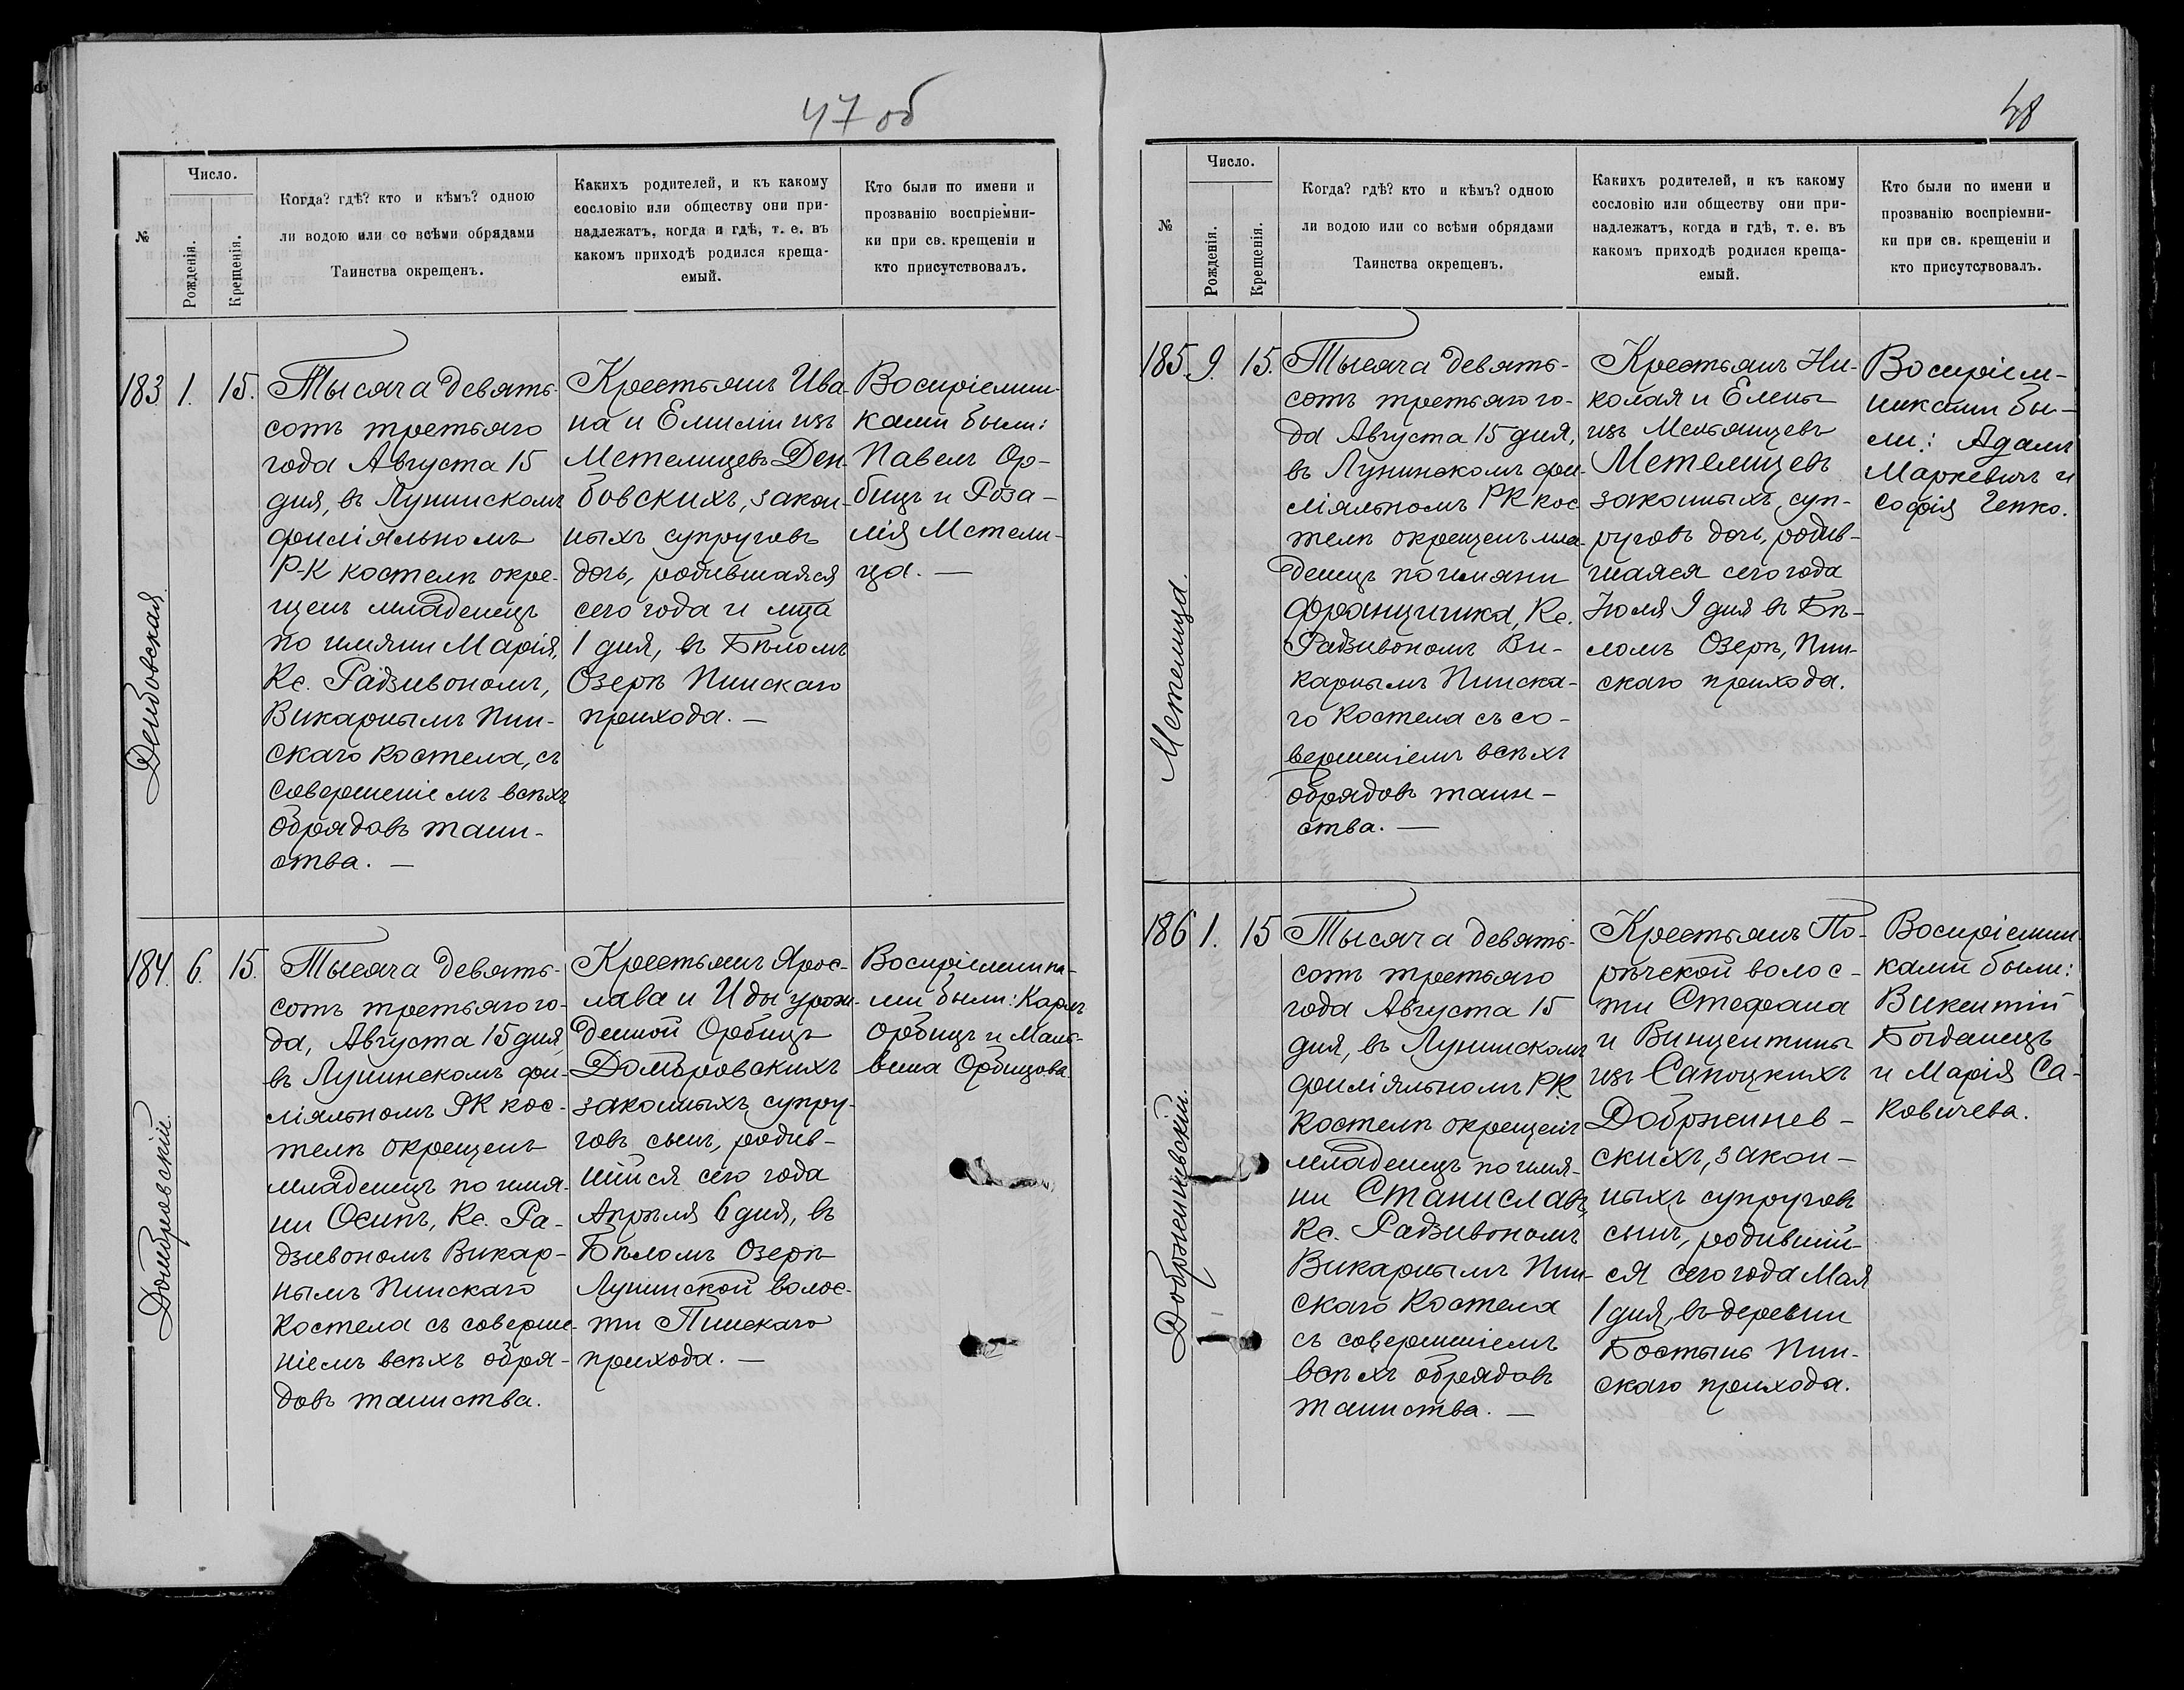 47 об
№
Число.
Рожденія.
Крещенія.
Когда? гдѣ? кто и кѣмъ? одною
ли водою или со всѣми обрядами
Таинства окрещенъ.
Какихъ родителей, и къ какому
сословію или обществу они при-
надлежатъ, когда и гдѣ, т. е. въ
какомъ приходѣ родился креща-
емый.
Кто были по имени и
прозванію воспріемни-
ки при св. крещеніи и
кто присутствовалъ.
183. 1. 15.
Денбовская
Тысяча девять-
сотъ третьяго
года Августа 15
дня, въ Лунинскомъ
филіяльномъ
Р-К костелѣ окре-
щенъ младенецъ
по имяни Марія,
Кс. Радзивономъ,
Викарнымъ Пин-
скаго костела, съ
совершеніемъ всѣхъ
обрядовъ таин-
ства. —
Крестьянъ Ива-
на и Емиліи изъ
Метелицевъ Ден-
бовскихъ, закон-
ныхъ супруговъ
дочь, родившаяся
сего года и мца
1 дня, въ Бѣломъ
Озерѣ Пинскаго
прихода. —
Воспріемни-
ками были:
Павелъ Ор-
бицъ и Роза-
лія Метели-
ца. —
184. 6. 15.
Домбровскій.
Тысяча девять-
сотъ третьяго го-
да, Августа 15 дня,
въ Лунинскомъ фи-
ліяльномъ РК кос-
телѣ окрещенъ
младенецъ по имя-
ни Осипъ, Кс. Ра-
дзивономъ Викар-
нымъ Пинскаго
костела съ соверше-
ніемъ всѣхъ обря-
довъ таинства.
Крестьянъ Ярос-
лава и Иды урож-
денной Орбицъ
Домбровскихъ
законныхъ супру-
говъ сынъ, родив-
шійся сего года
Апрѣля 6 дня, въ
Бѣломъ Озерѣ
Лунинской волос-
ти Пинскаго
прихода. —
Воспріемника-
ми были: Карлъ
Орбицъ и Маль-
вина Орбицова.
48
№
Число.
Рожденія.
Крещенія.
Когда? гдѣ? кто и кѣмъ? одною
ли водою или со всѣми обрядами
Таинства окрещенъ.
Какихъ родителей, и къ какому
сословію или обществу они при-
надлежатъ, когда и гдѣ, т. е. въ
какомъ приходѣ родился креща-
емый.
Кто были по имени и
прозванію воспріемни-
ки при св. крещеніи и
кто присутствовалъ.
185. 9. 15.
Метелица.
Тысяча девять-
сотъ третьяго го-
да Августа 15 дня,
въ Лунинскомъ фи-
ліяльномъ РК кос
телѣ окрещенъ мла-
денецъ по имяни
Францишка, Кс.
Радзивономъ Ви-
карнымъ Пинска-
го костела съ со-
вершеніемъ всѣхъ
обрядовъ таин-
ства. —
Крестьянъ Ни-
колая и Елены
изъ Мельянцевъ
Метелицевъ
законныхъ суп-
руговъ дочь, родив-
шаяся сего года
Іюля 9 дня въ Бѣ-
ломъ Озерѣ, Пин-
скаго прихода.
Воспріем-
никами бы-
ли: Адамъ
Маркевичъ и
Софія Ченко.
186 1. 15
Добржиневскій.
Тысяча девять-
сотъ третьяго
года Августа 15
дня, въ Лунинскомъ
филіяльномъ РК
костелѣ окрещенъ
младенецъ по имя-
ни Станиславъ,
Кс. Радзивономъ
Викарнымъ Пин-
скаго костела
съ совершеніемъ
всѣхъ обрядовъ
таинства. —
Крестьянъ По-
рѣчской волос-
ти Стефана
и Винцентины
изъ Сапоцкихъ
Добржинев-
скихъ, закон-
ныхъ супруговъ
сынъ, родившій-
ся сего года Мая
1 дня, въ деревни
Бостынь Пин-
скаго прихода.
Воспріемни
ками были:
Викентій
Богданецъ
и Марія Са-
ковичева.